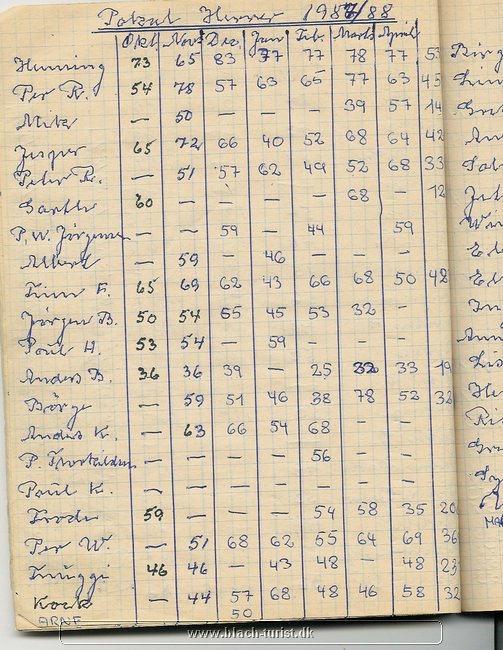 Pokal Herrer 1987/88
Okt. Nov. Dec. Jan Feb. Marts April
Henning 73 65 83 77 77 78 77 53
Per R. 54 78 57 63 65 77 63 45
— 50 — — — 39 57 14
Jesper 65 72 66 40 52 68 64 42
Peter R. — 51 57 62 49 52 68 33
60 — — — — 68 — 12
P. W. Jörgensen — — 59 — 44 59
Albert — 59 — 46
Finn F. 65 69 62 43 66 68 50 42
Jörgen B. 50 54 65 45 53 32 —
Poul H. 53 54 — 59 — — —
Anders B. 36 36 39 — 25 32 33 19
Börge — 59 51 46 38 78 52 32
Anders K. — 63 66 54 68 — —
P. — — — — 56 — —
Poul K. — — — — — — —
Frode 59 — — — 54 58 35 20
Per W. — 51 68 62 55 64 69 36
46 46 — 43 48 — 48 23
Kock — 44 57 68 48 46 58 32
ARNE 50
www.blach-turist.dk